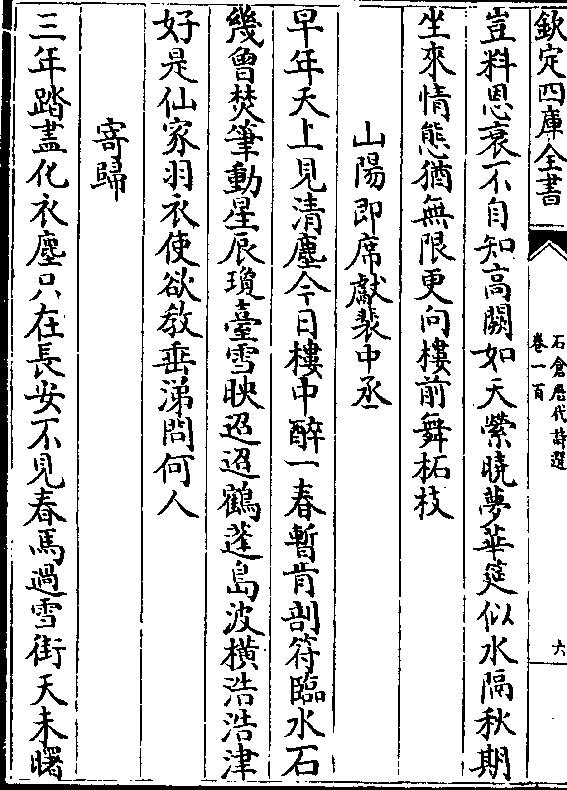 欽定四庫全書
石倉歴代詩選
卷一百
六
豈料恩衰不自知高闕如天縈曉夢華筵似水隔秋期
坐來情態猶無限更向樓前舞柘枝
山陽即席獻裴中丞
早年天上見清塵今日樓中醉一春暫肯剖符臨水石
幾曾焚筆動星辰瓊臺雪映迢迢鶴蓬島波横浩浩津
好是仙家羽衣使欲教垂涕問何人
寄歸
三年踏盡化衣塵只在長安不見春馬過雪街天未曙